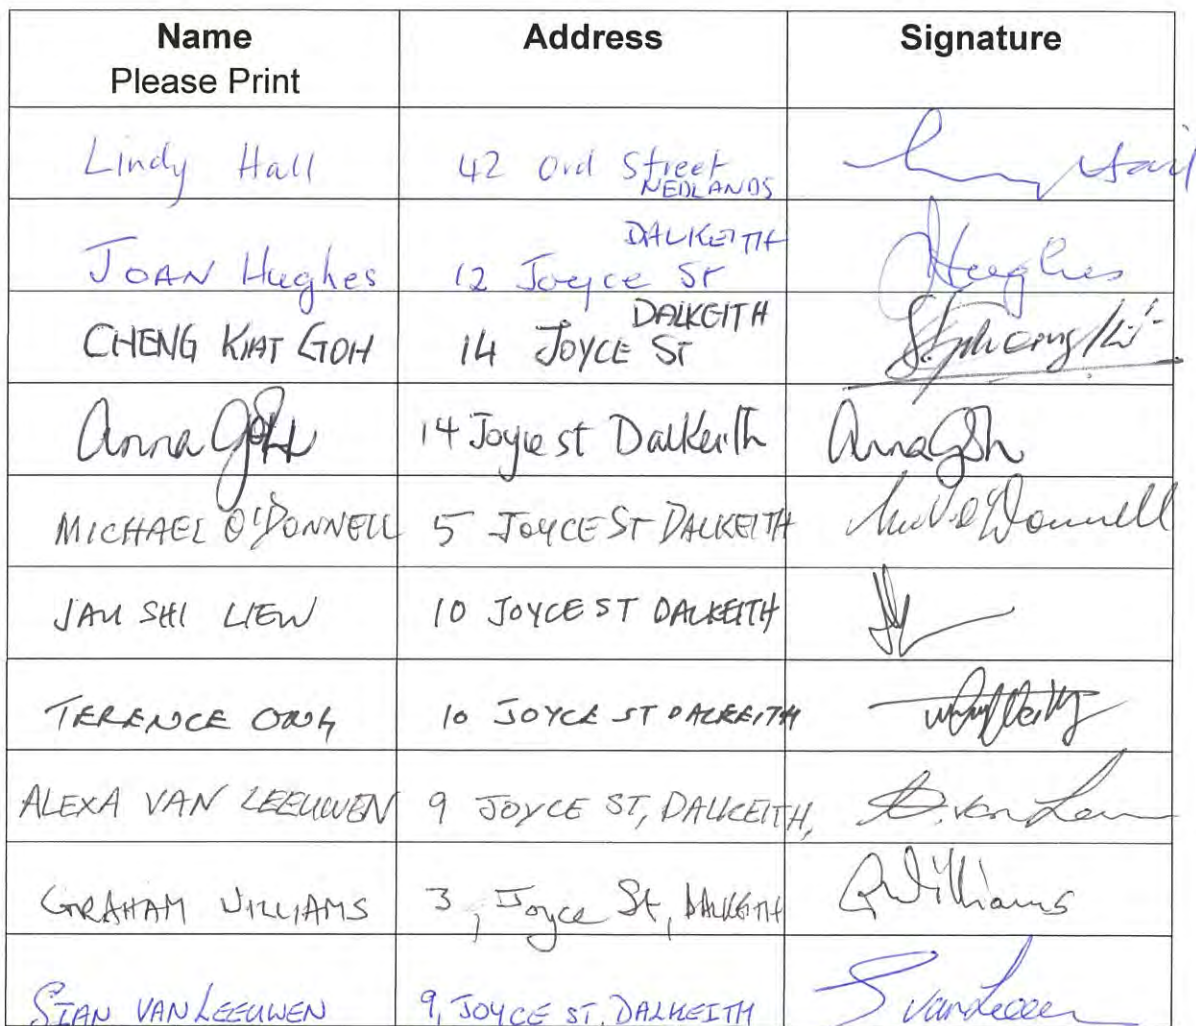 Name Address Signature
Please Print
Lindy Hall 42 Ord Street NEDLANDS
JOAN Hughes 12 Joyce St DALKEITH Hughes
CHENG KIAT GOH 14 JOYCE ST DALKEITH
Anna GOH 14 Joyce st Dalkeith Anna Goh
MICHAEL O'DONNELL 5 JOYCE ST DALKEITH O'Donnell
JAU SHI LIEW 10 JOYCE ST DALKEITH
TERENCE ONG 10 JOYCE ST DALKEITH
ALEXA VAN LEEUWEN 9 JOYCE ST, DALKEITH,
GRAHAM WILLIAMS 3, Joyce St, DALKEITH GWilliams
SIAN VAN LEEUWEN 9, JOYCE ST, DALKEITH